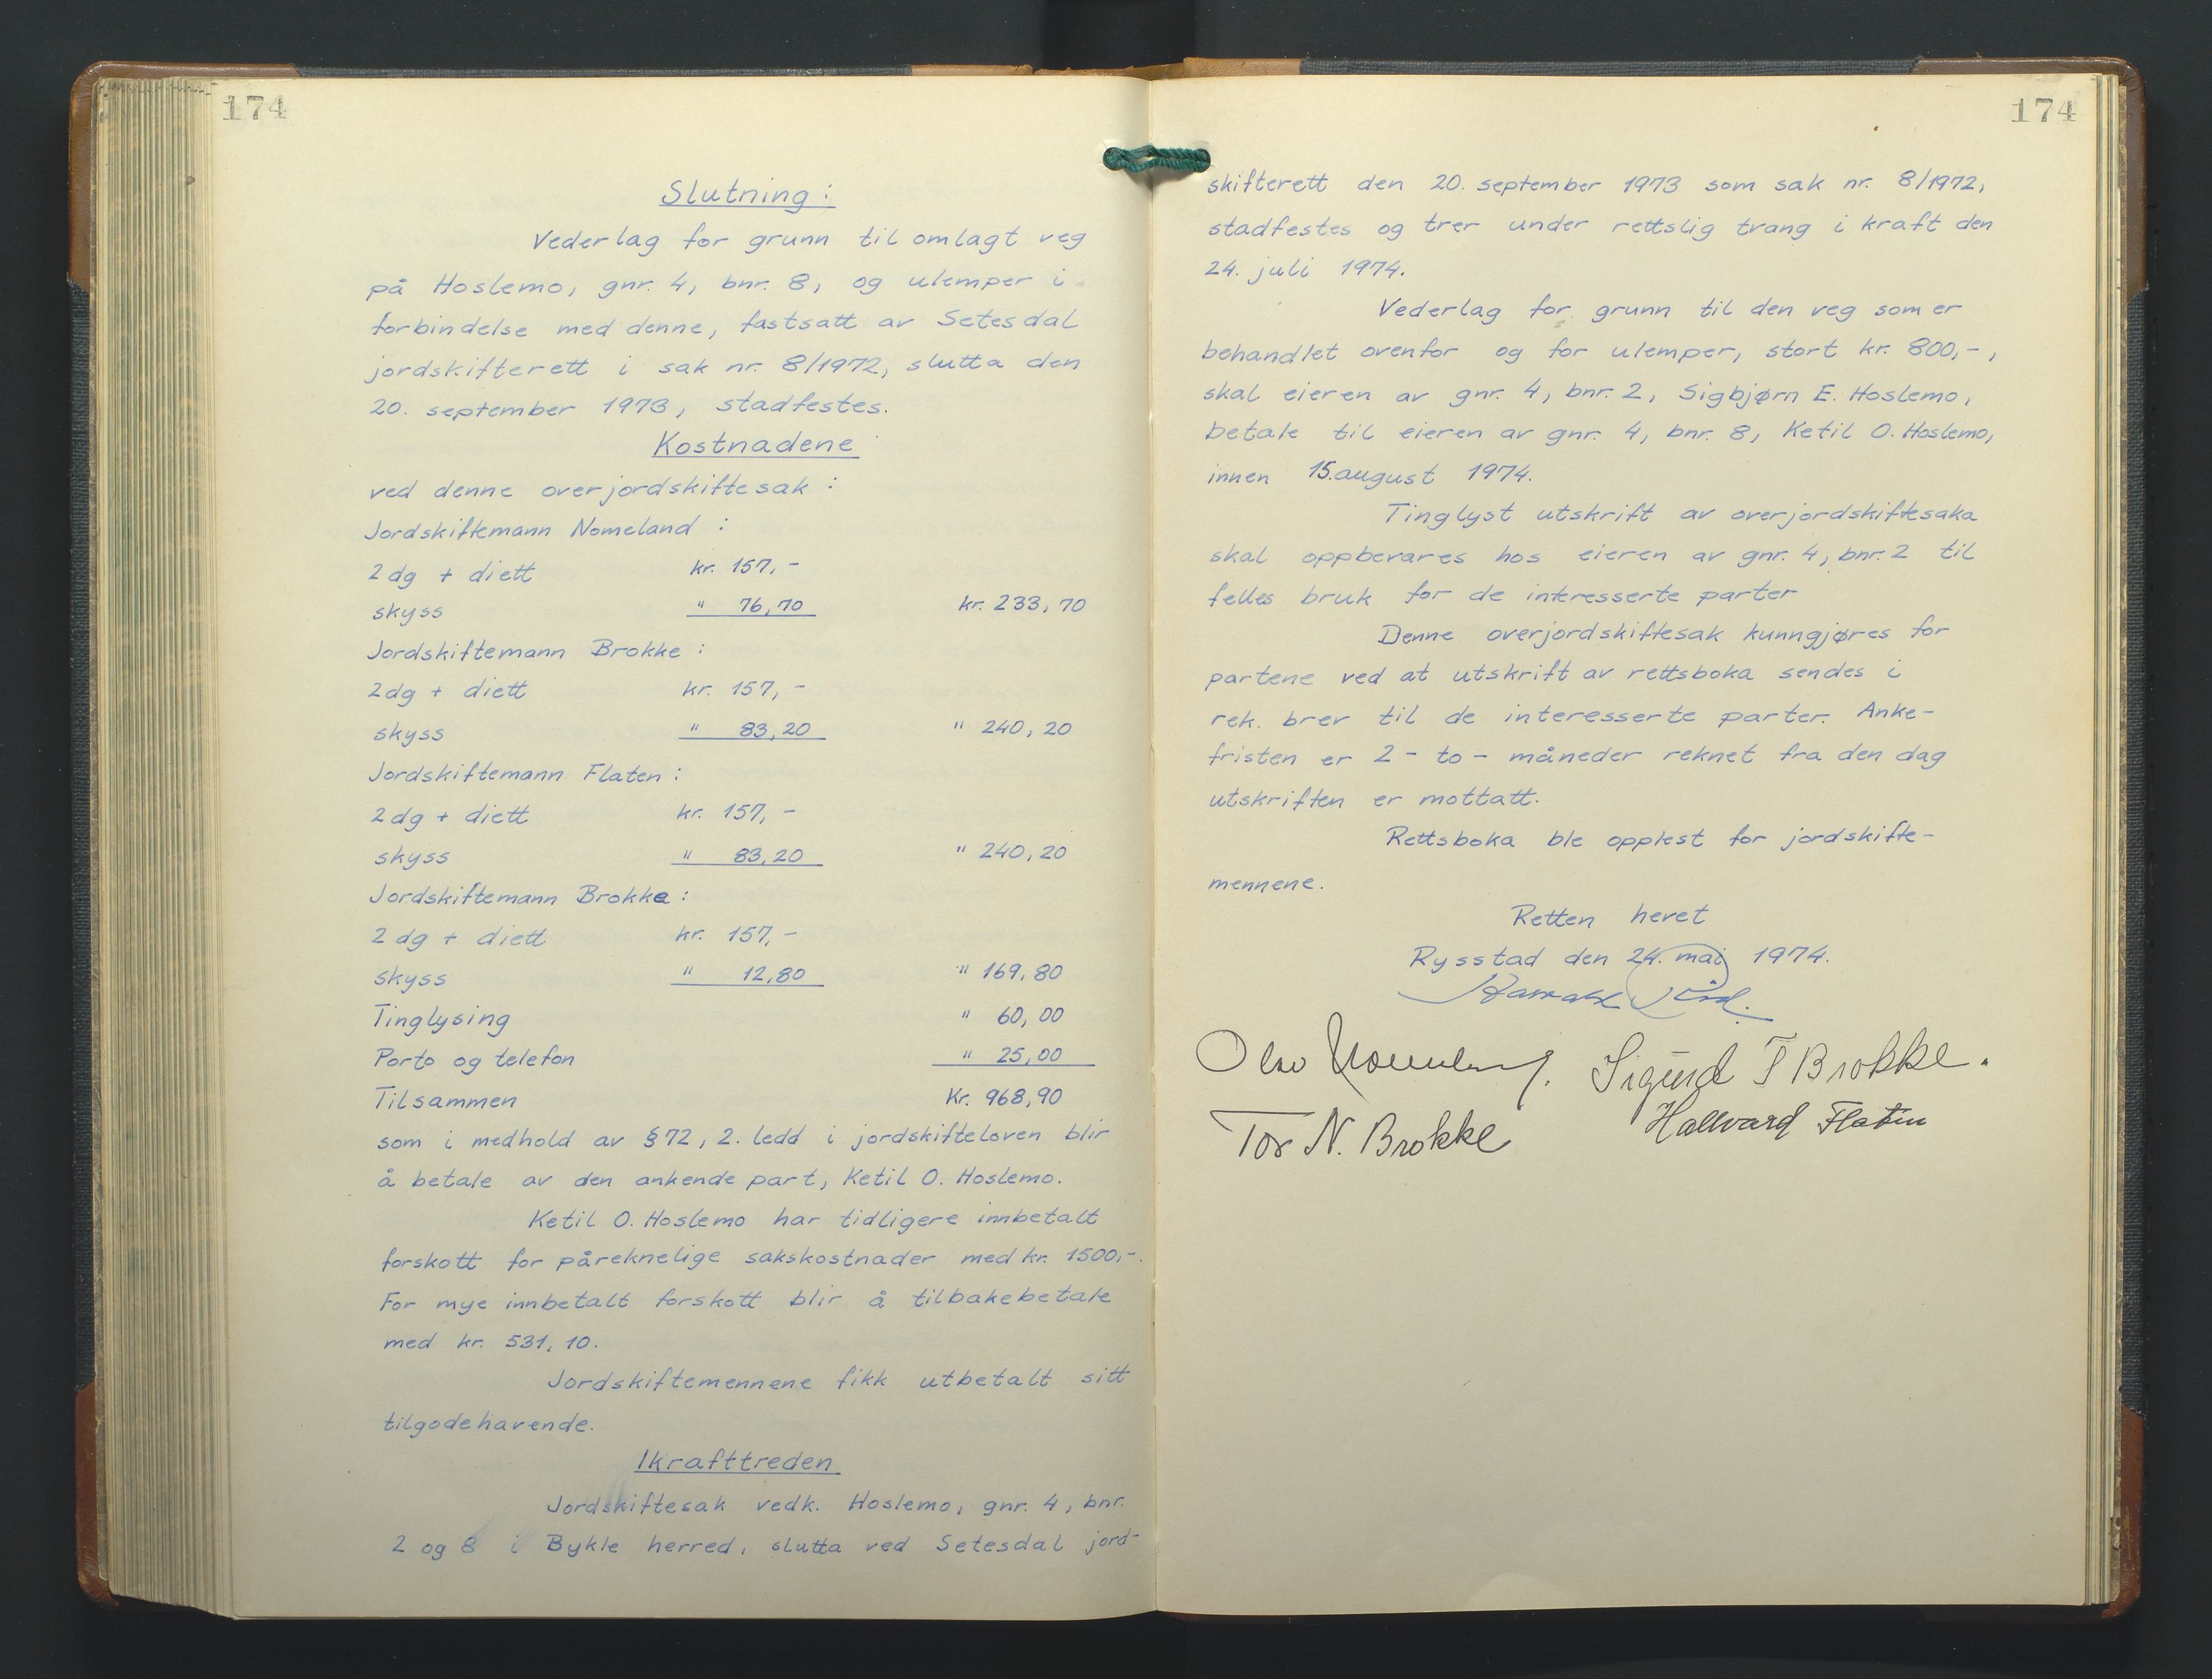 174
Slutning:
Vederlag for grunn til omlagt veg
på Hoslemo, gnr. 4, bnr. 8, og ulemper i
forbindelse med denne, fastsatt av Setesdal
jordskifterett i sak nr. 8/1972, slutta den
20. september 1973, stadfestes.
Kostnadene
ved denne overjordskiftesak:
Jordskiftemann Nomeland:
2 dg + diett kr. 157,-
skyss " 76,70 kr. 233,70
Jordskiftemann Brokke:
2 dg + diett kr. 157,-
skyss " 83,20 " 240,20
Jordskiftemann Flaten:
2 dg + diett kr. 157,-
skyss " 83,20 " 240,20
Jordskiftemann Brokke:
2 dg + diett kr. 157,-
skyss " 12,80 " 169,80
Tinglysing " 60,00
Porto og telefon " 25,00
Tilsammen Kr. 968,90
som i medhold av § 72, 2. ledd i jordskifteloven blir
å betale av den ankende part, Ketil O. Hoslemo.
Ketil O. Hoslemo har tidligere innbetalt
forskott for påreknelige sakskostnader med kr. 1500,-.
For mye innbetalt forskott blir å tilbakebetale
med kr. 531,10.
Jordskiftemennene fikk utbetalt sitt
tilgodehavende.
Ikrafttreden
Jordskiftesak vedk. Hoslemo, gnr. 4, bnr.
2 og 8 i Bykle herred, slutta ved Setesdal jord-
174
skifterett den 20. september 1973 som sak nr. 8/1972,
stadfestes og trer under rettslig tvang i kraft den
24. juli 1974.
Vederlag for grunn til den veg som er
behandlet ovenfor og for ulemper, stort kr. 800,-,
skal eieren av gnr. 4, bnr. 2, Sigbjørn E. Hoslemo,
betale til eieren av gnr. 4, bnr. 8, Ketil O. Hoslemo,
innen 15. august 1974.
Tinglyst utskrift av overjordskiftesaka
skal oppbevares hos eieren av gnr. 4, bnr. 2 til
felles bruk for de interesserte parter
Denne overjordskiftesak kunngjøres for
partene ved at utskrift av rettsboka sendes i
rek. brev til de interesserte parter. Anke-
fristen er 2 - to - måneder reknet fra den dag
utskriften er mottatt.
Rettsboka ble opplest for jordskifte-
mennene.
Retten hevet
Rysstad den 24. mai 1974.
Sigurd T Brokke.
Tor N. Brokke Hallvard Flaten